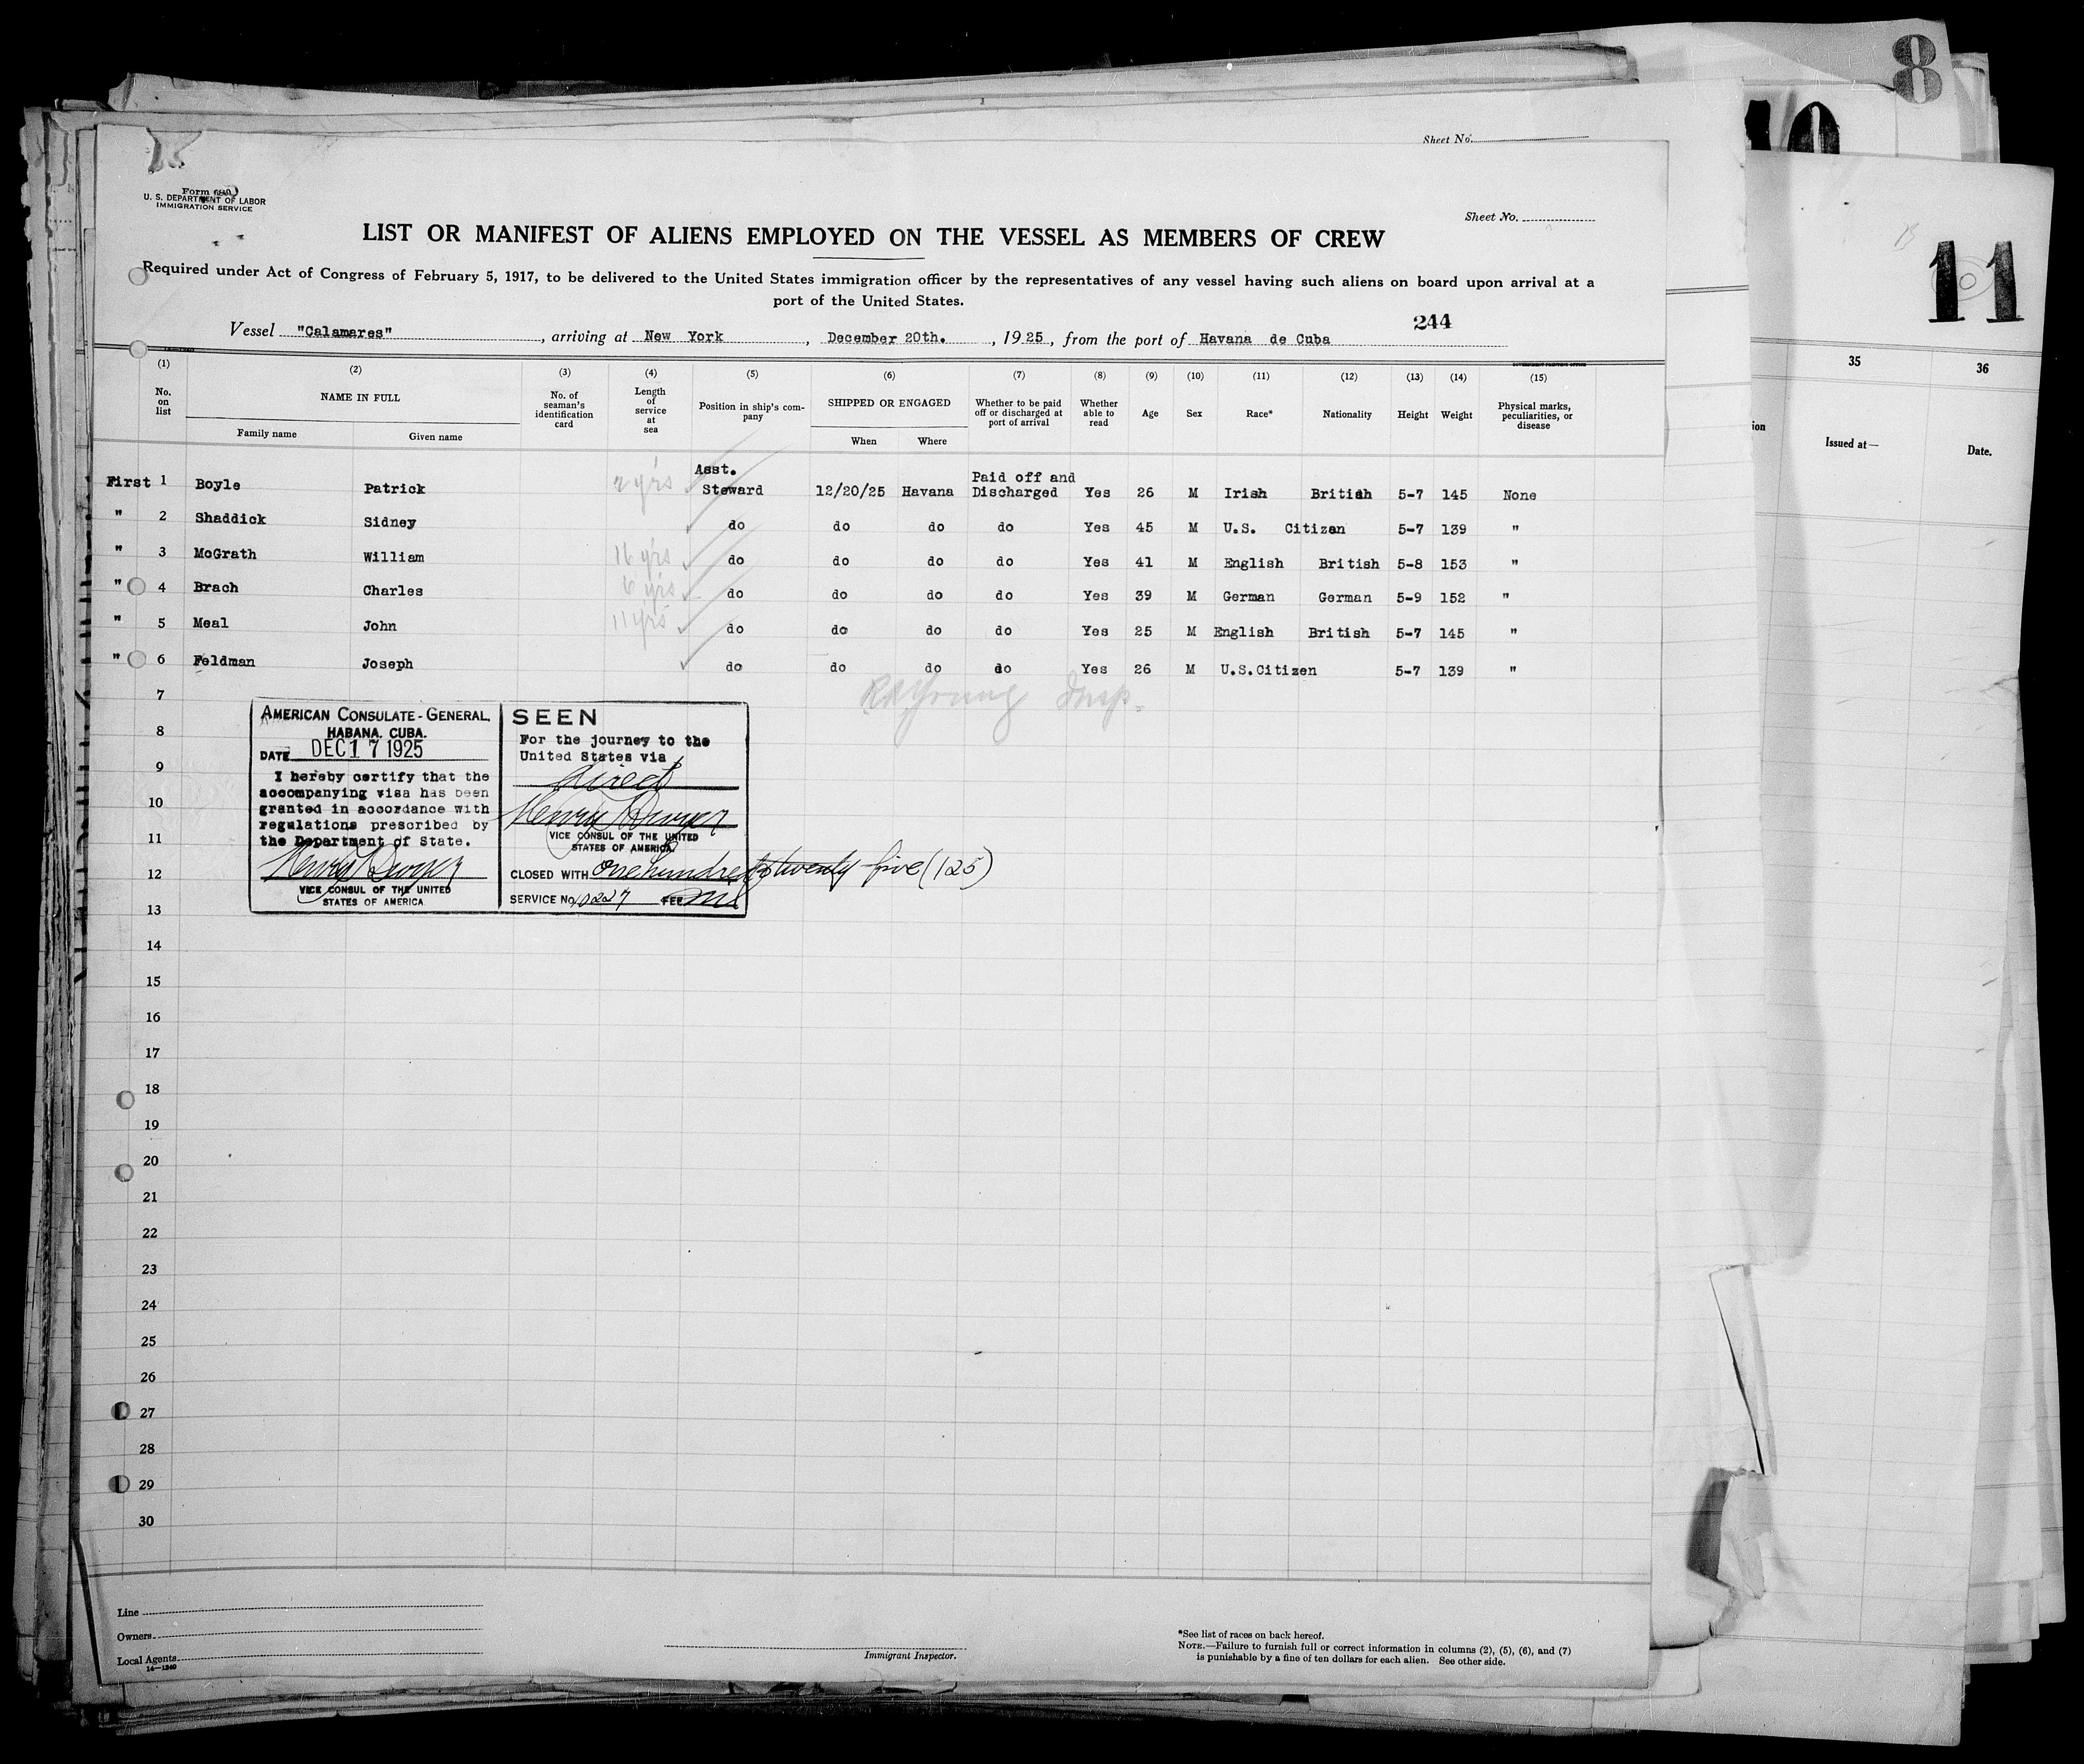 8
10
11
35 36
Issued at— Date.
Sheet No.
Form 680
U. S. DEPARTMENT OF LABOR
IMMIGRATION SERVICE
Sheet No.
LIST OR MANIFEST OF ALIENS EMPLOYED ON THE VESSEL AS MEMBERS OF CREW
Required under Act of Congress of February 5, 1917, to be delivered to the United States immigration officer by the representatives of any vessel having such aliens on board upon arrival at a
port of the United States.
244
Vessel "Calamares", arriving at New York, December 20th., 1925, from the port of Havana de Cuba
(1) (2) (3) (4) (5) (6) (7) (8) (9) (10) (11) (12) (13) (14) (15)
No. on list NAME IN FULL Family name Given name No. of seaman's identification card Length of service at sea Position in ship's company SHIPPED OR ENGAGED When Where Whether to be paid off or discharged at port of arrival Whether able to read Age Sex Race* Nationality Height Weight Physical marks, peculiarities, or disease
First 1 Boyle Patrick 2 yrs Asst. Steward 12/20/25 Havana Paid off and Discharged Yes 26 M Irish British 5-7 145 None
" 2 Shaddick Sidney do do do do Yes 45 M U.S. Citizen 5-7 139 "
" 3 McGrath William 16 yrs do do do do Yes 41 M English British 5-8 153 "
" 4 Brach Charles 6 yrs do do do do Yes 39 M German German 5-9 152 "
" 5 Meal John 11 yrs do do do do Yes 25 M English British 5-7 145 "
" 6 Feldman Joseph do do do do Yes 26 M U.S.Citizen 5-7 139 "
7
Young Insp.
8
9
10
11
12
13
AMERICAN CONSULATE-GENERAL,
HABANA, CUBA.
DATE DEC 17 1925
I hereby certify that the
accompanying visa has been
granted in accordance with
regulations prescribed by
the Department of State.
VICE CONSUL OF THE UNITED
STATES OF AMERICA
SEEN
For the journey to the
United States via
direct
VICE CONSUL OF THE UNITED
STATES OF AMERICA
CLOSED WITH One hundred twenty five (125)
SERVICE No. 10227 FEE
14
15
16
17
18
19
20
21
22
23
24
25
26
27
28
29
30
Line
Owners
Local Agents
14—1240
Immigrant Inspector.
*See list of races on back hereof.
NOTE.—Failure to furnish full or correct information in columns (2), (5), (6), and (7)
is punishable by a fine of ten dollars for each alien. See other side.